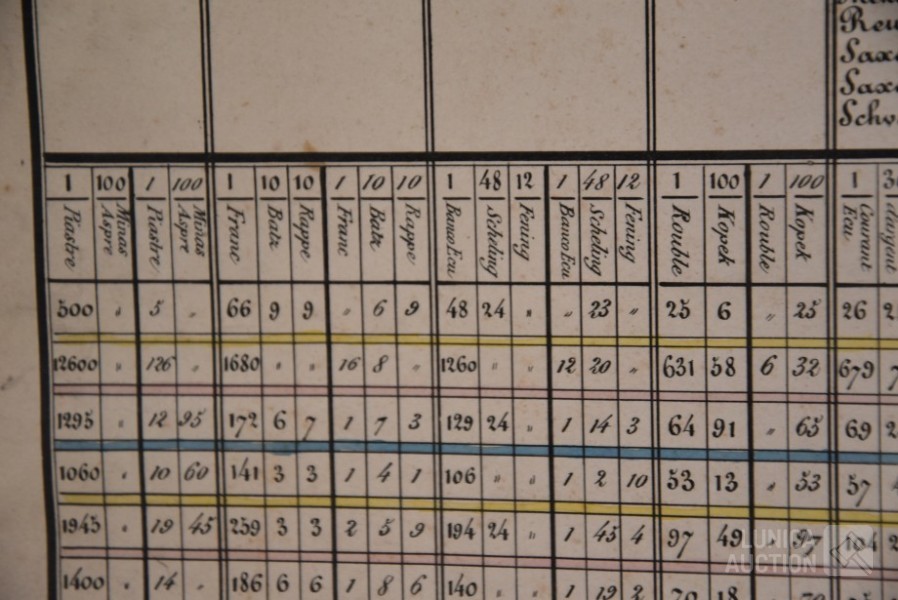 Saxe
Saxe
1 100 1 100 1 10 10 1 10 10 1 48 12 1 48 12 1 100 1 100 1
Piastre Minas Aspre Piastre Minas Aspre Franc Batz Rappe Franc Batz Rappe Banco Ecu Scheling Fening Banco Ecu Scheling Fening Rouble Kopek Rouble Kopek Courant Ecu d'argent
500 " 5 " 66 9 9 " 6 9 48 24 " " 23 " 25 6 " 25 26
12600 " 126 " 1680 " " 16 8 " 1260 " " 12 20 " 631 58 6 32 679
1295 " 12 95 172 6 7 1 7 3 129 24 " 1 14 3 64 91 " 65 69
1060 " 10 60 141 3 3 1 4 1 106 " " 1 2 10 53 13 " 53 57
1945 " 19 45 259 3 3 2 5 9 194 24 " 1 45 4 97 49 " 97 104
1400 " 14 " 186 6 6 1 8 6 140 " " 1 19 2 70 18 70
LUNICA
AUCTION